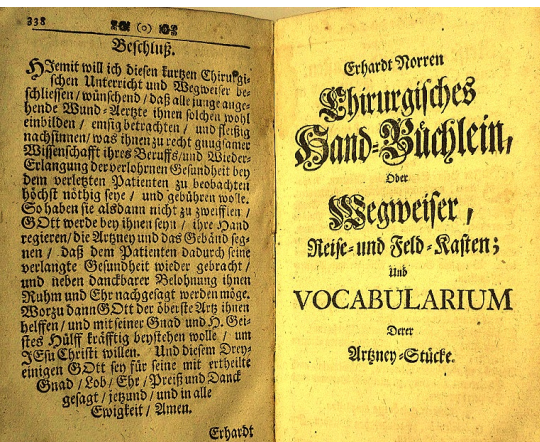 338
(o)
Beschluß.
HIemit will ich diesen kurtzen Chirurgi-
schen Unterricht und Wegweiser be-
schliessen / wünschend / daß alle junge ange-
hende Wund-Aertzte ihnen solchen wohl
einbilden / emsig betrachten / und fleißig
nachsinnen / was ihnen zu recht gnugsamer
Wissenschafft ihres Beruffs / und Wieder-
Erlangung der verlohrnen Gesundheit bey
dem verletzten Patienten zu beobachten
höchst nöthig seye / und gebühren wolle.
So haben sie alsdann nicht zu zweifflen /
GOtt werde bey ihnen seyn / ihre Hand
regieren / die Artzney und das Gebänd seg-
nen / daß dem Patienten dadurch seine
verlangte Gesundheit wieder gebracht /
und neben danckbarer Belohnung ihnen
Ruhm und Ehr nachgesagt werden möge.
Worzu dann GOtt der öberste Artz ihnen
helffen / und mit seiner Gnad und H. Gei-
stes Hülff kräfftig beystehen wolle / um
JEsu Christi willen. Und diesem Drey-
einigen GOtt sey für seine mit ertheilte
Gnad / Lob / Ehr / Preiß und Danck
gesagt / jetzund / und in alle
Ewigkeit / Amen.
Erhardt
Erhardt Norren
Chirurgisches
Hand-Büchlein,
Oder
Wegweiser,
Reise- und Feld-Kasten;
Und
VOCABULARIUM
Derer
Artzney-Stücke.